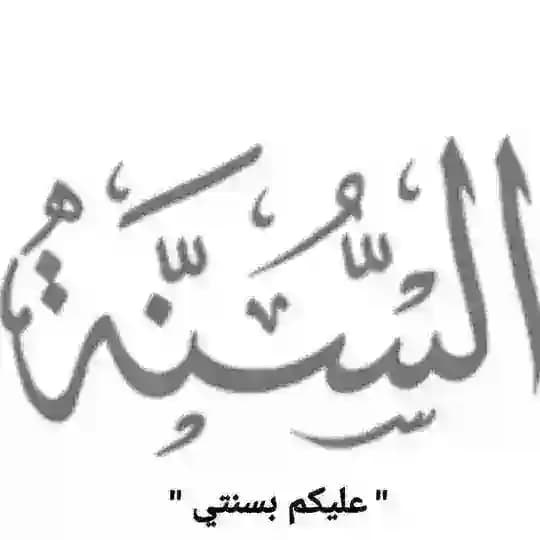 السُّنَّةُ
" عليكم بسنتي "